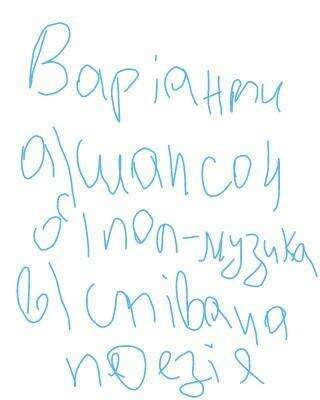 Варіанти
а) шансон
б) поп-музика
в) співана
поезія